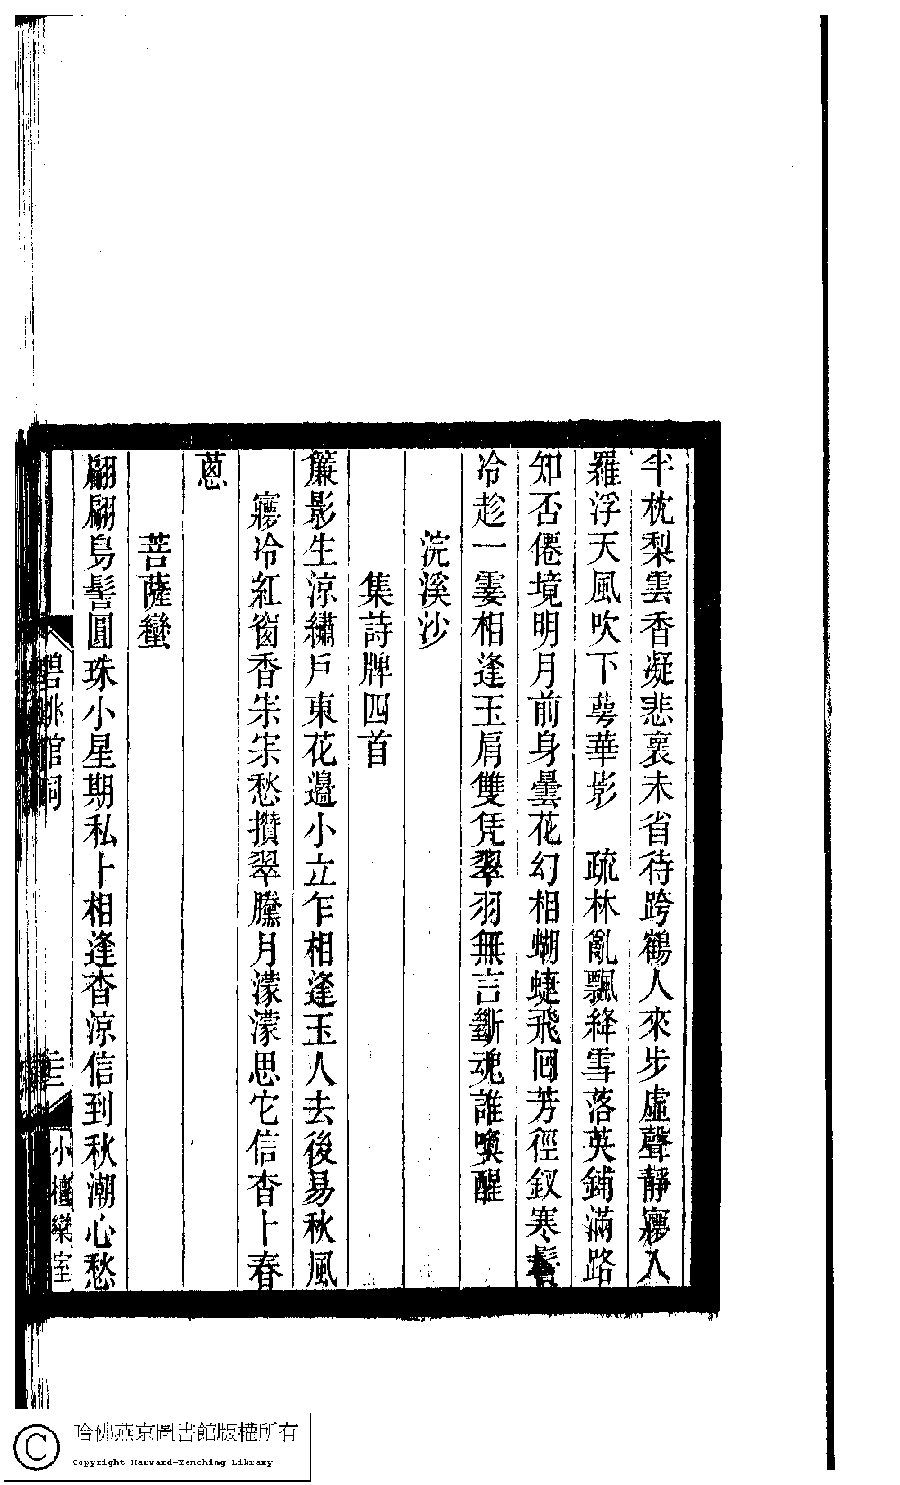 半枕梨雲香凝悲裏未省待跨鶴人來步虛聲靜寢入
羅浮天風吹下萼華影　疏林亂飄絳雪落英鋪滿路
知否僊境明月前身曇花幻相蝴蜨飛回芳徑釵寒鬢
冷趁一霎相逢玉肩雙凭翠羽無言斷魂誰喚醒
浣溪沙
集詩牌四首
簾影生涼繡戶東花邊小立乍相逢玉人去後易秋風
寢冷紅窗香宋宋愁攢翠臘月濛濛思它信杳卜春
蔥
菩薩蠻
翩翩鳥髻圓珠小星期私卜相逢杳涼信到秋潮心愁
碧桃館詞
圭
小檀欒室
哈佛燕京圖書館版權所有
Copyright Harvard-Yenching Library